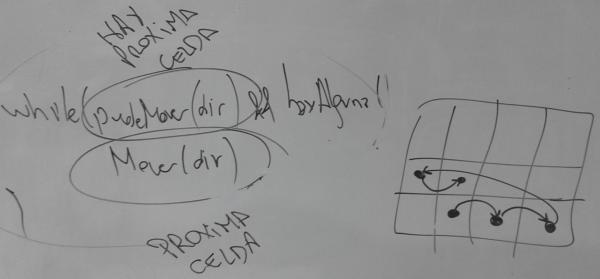 HAY
PROXIMA
CELDA
while(puedeMover(dir) && hayAlguna
Mover(dir)
)
PROXIMA
CELDA